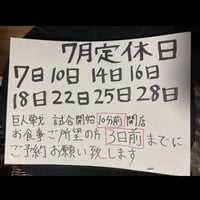 7月定休日
7日10日14日16日
18日22日25日28日
巨人戦 試合開始10分前開店
お食事ご希望の方3日前までに
ご予約お願い致します